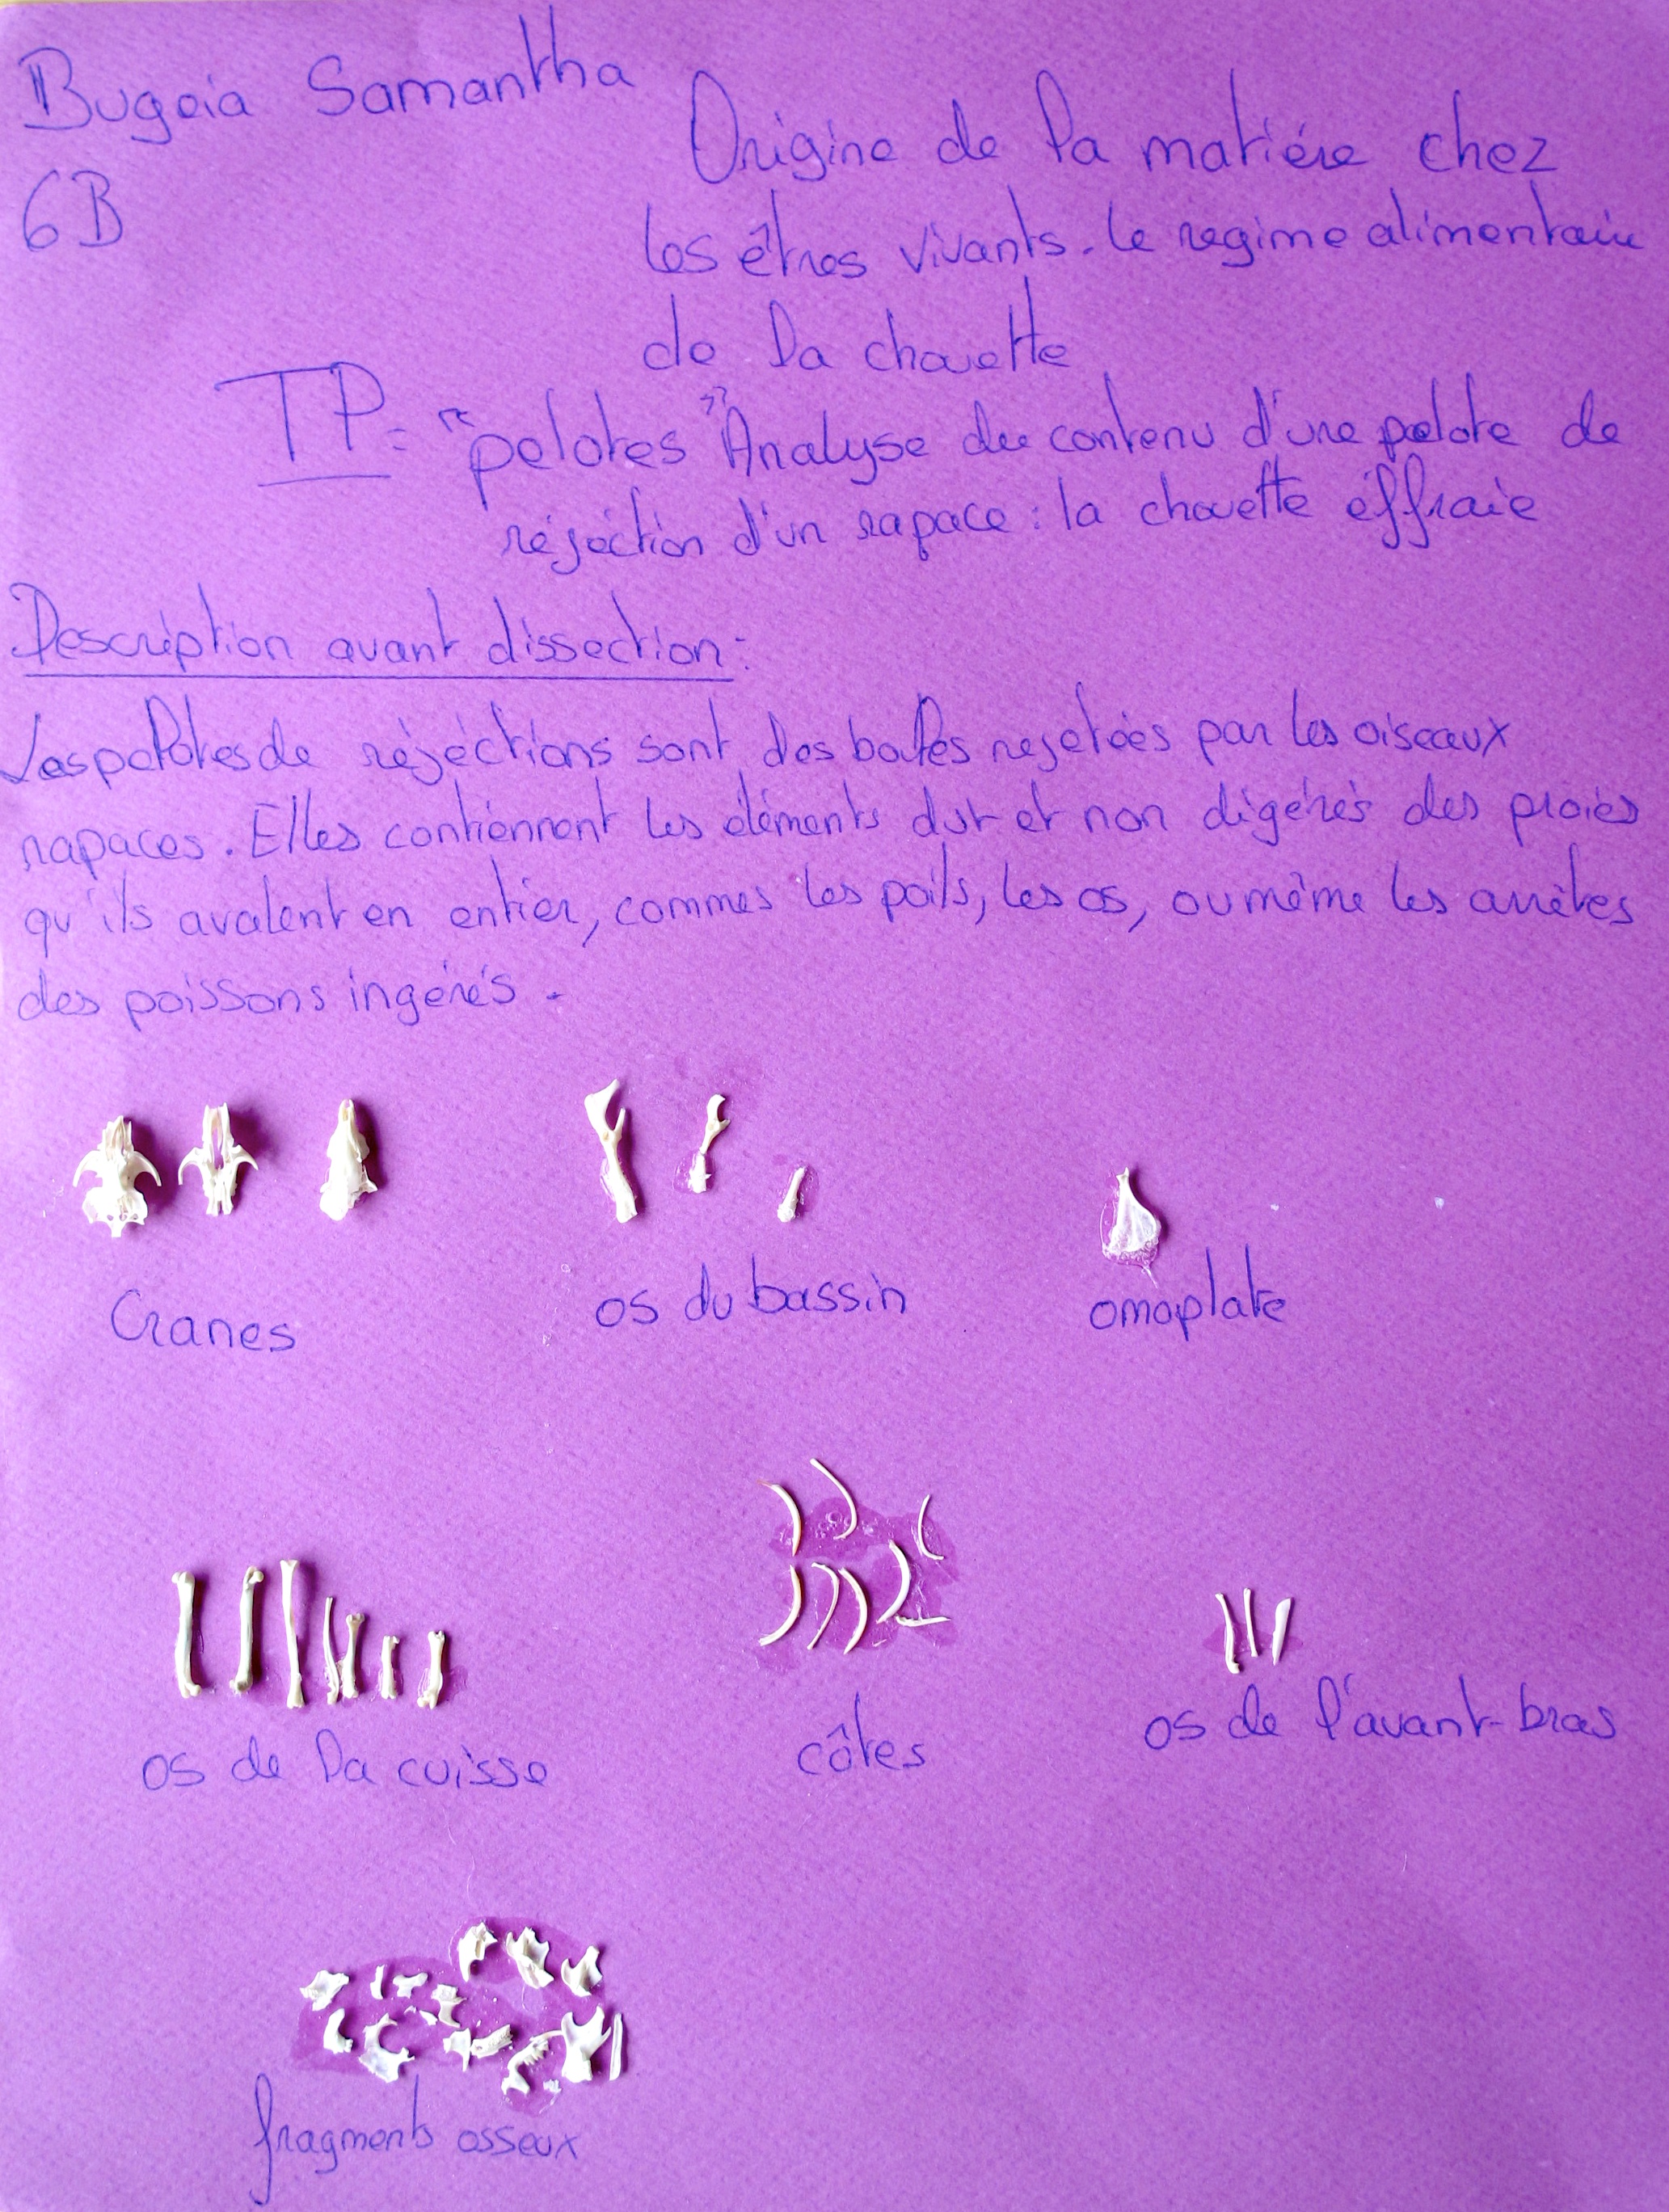 Bugeia Samantha
6B
Origine de la matiére chez
les êtres vivants. le regime alimentaire
de la chouette
TP: "pelotes" Analyse du contenu d'une pelote de
réjéction d'un rapace: la chouette éffraie
Description avant dissection:
Les pelotes de réjéctions sont des boules rejetées par les oiseaux
rapaces. Elles contiennent les éléments dur et non digérés des proies
qu'ils avalent en entier, commes les poils, les os, ou même les arrêtes
des poissons ingérés.
Cranes
os du bassin
omoplate
os de la cuisse
côtes
os de l'avant-bras
fragments osseux